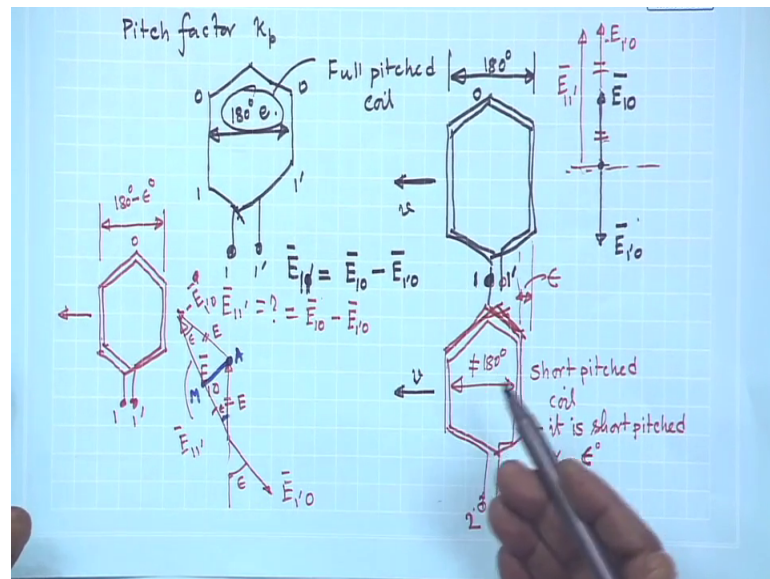 Pitch factor Kp
0 0
180° e.
Full pitched
coil
1 1'
1 1'
Ē11' = Ē10 - Ē1'0
180°
0
v
1 1'
-E1'0
Ē11'
Ē10
Ē1'0
180°-ϵ°
0
1 1'
-Ē1'0
Ē11' = ? = Ē10 - Ē1'0
ϵ
E
A
M
E
Ē11'
ϵ
Ē1'0
ϵ
≠180°
v
short pitched
coil
it is short pitched
ϵ°
2